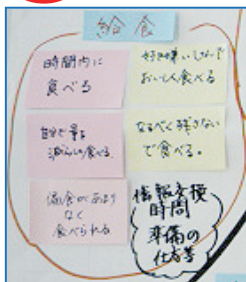 給食
時間内に
食べる
好き嫌いしないで
おいしく食べる
自分で量を
減らして食べる
なるべく残さない
で食べる。
偏食があまり
なく
食べられる
情報交換
時間
準備の
仕方等